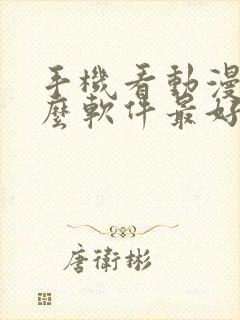 手機看動漫
麼軟件最好
唐衛彬